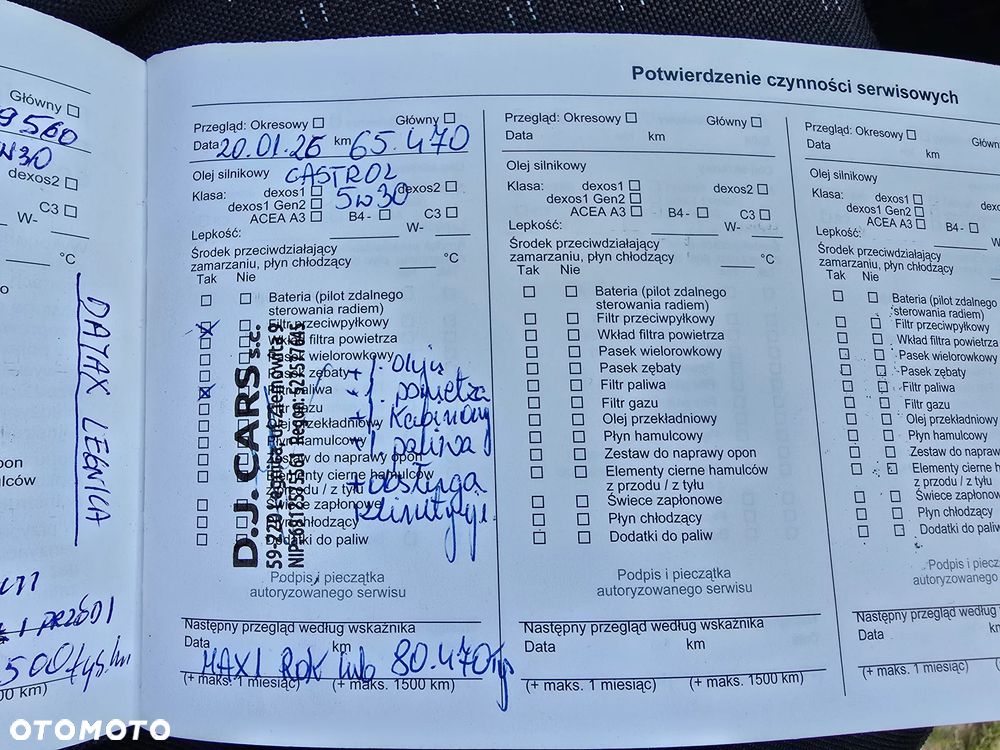 Główny
9560
W30
dexos2
C3
W-
°C
DAJAX LEGNICA
pon
ulców
1 PRZÓD I
500 tys. km
00 km)
Potwierdzenie czynności serwisowych
Przegląd: Okresowy Główny
Data 20.01.26 km 65.470
Olej silnikowy CASTROL
Klasa: dexos1 5w30 dexos2
dexos1 Gen2
ACEA A3 B4- C3
Lepkość: W-
Środek przeciwdziałający
zamarzaniu, płyn chłodzący °C
Tak Nie
Bateria (pilot zdalnego
sterowania radiem)
Filtr przeciwpyłkowy
Wkład filtra powietrza
Pasek wielorowkowy
Pasek zębaty
Filtr paliwa
Filtr gazu
Olej przekładniowy
Płyn hamulcowy
Zestaw do naprawy opon
Elementy cierne hamulców
z przodu / z tyłu
Świece zapłonowe
Płyn chłodzący
Dodatki do paliw
D.J. CARS s.c.
59-220 Legnica, ul. Ziemowita 9
+ f. oleju
+ f. powietrza
+ f. kabinowy
+ f. paliwa
+ obsługa
klimatyzji.
Podpis i pieczątka
autoryzowanego serwisu
Następny przegląd według wskaźnika
Data km
MAXI ROK lub 80.470 tys
(+ maks. 1 miesiąc) (+ maks. 1500 km)
Przegląd: Okresowy Główny
Data km
Olej silnikowy
Klasa: dexos1 dexos2
dexos1 Gen2
ACEA A3 B4- C3
Lepkość: W-
Środek przeciwdziałający
zamarzaniu, płyn chłodzący °C
Tak Nie
Bateria (pilot zdalnego
sterowania radiem)
Filtr przeciwpyłkowy
Wkład filtra powietrza
Pasek wielorowkowy
Pasek zębaty
Filtr paliwa
Filtr gazu
Olej przekładniowy
Płyn hamulcowy
Zestaw do naprawy opon
Elementy cierne hamulców
z przodu / z tyłu
Świece zapłonowe
Płyn chłodzący
Dodatki do paliw
Podpis i pieczątka
autoryzowanego serwisu
Następny przegląd według wskaźnika
Data km
(+ maks. 1 miesiąc) (+ maks. 1500 km)
Przegląd: Okresowy Główn
Data km
Olej silnikowy
Klasa: dexos1
dexos1 Gen2
ACEA A3 B4-
Lepkość: W-
Środek przeciwdziałający
zamarzaniu, płyn chłodzący
Tak Nie
Bateria (pilot zdalnego
sterowania radiem)
Filtr przeciwpyłkowy
Wkład filtra powietrza
Pasek wielorowkowy
Pasek zębaty
Filtr paliwa
Filtr gazu
Olej przekładniowy
Płyn hamulcowy
Zestaw do naprawy
Elementy cierne ham
z przodu / z tyłu
Świece zapłonowe
Płyn chłodzący
Dodatki do paliw
Podpis i pieczątk
autoryzowanego se
Następny przegląd według
Data km
(+ maks. 1 miesiąc) (+ ma
OTOMOTO